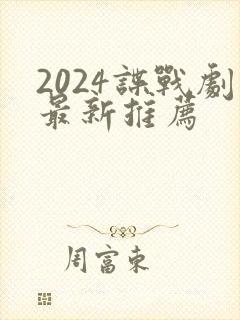 2024諜戰劇
最新推薦
周富東